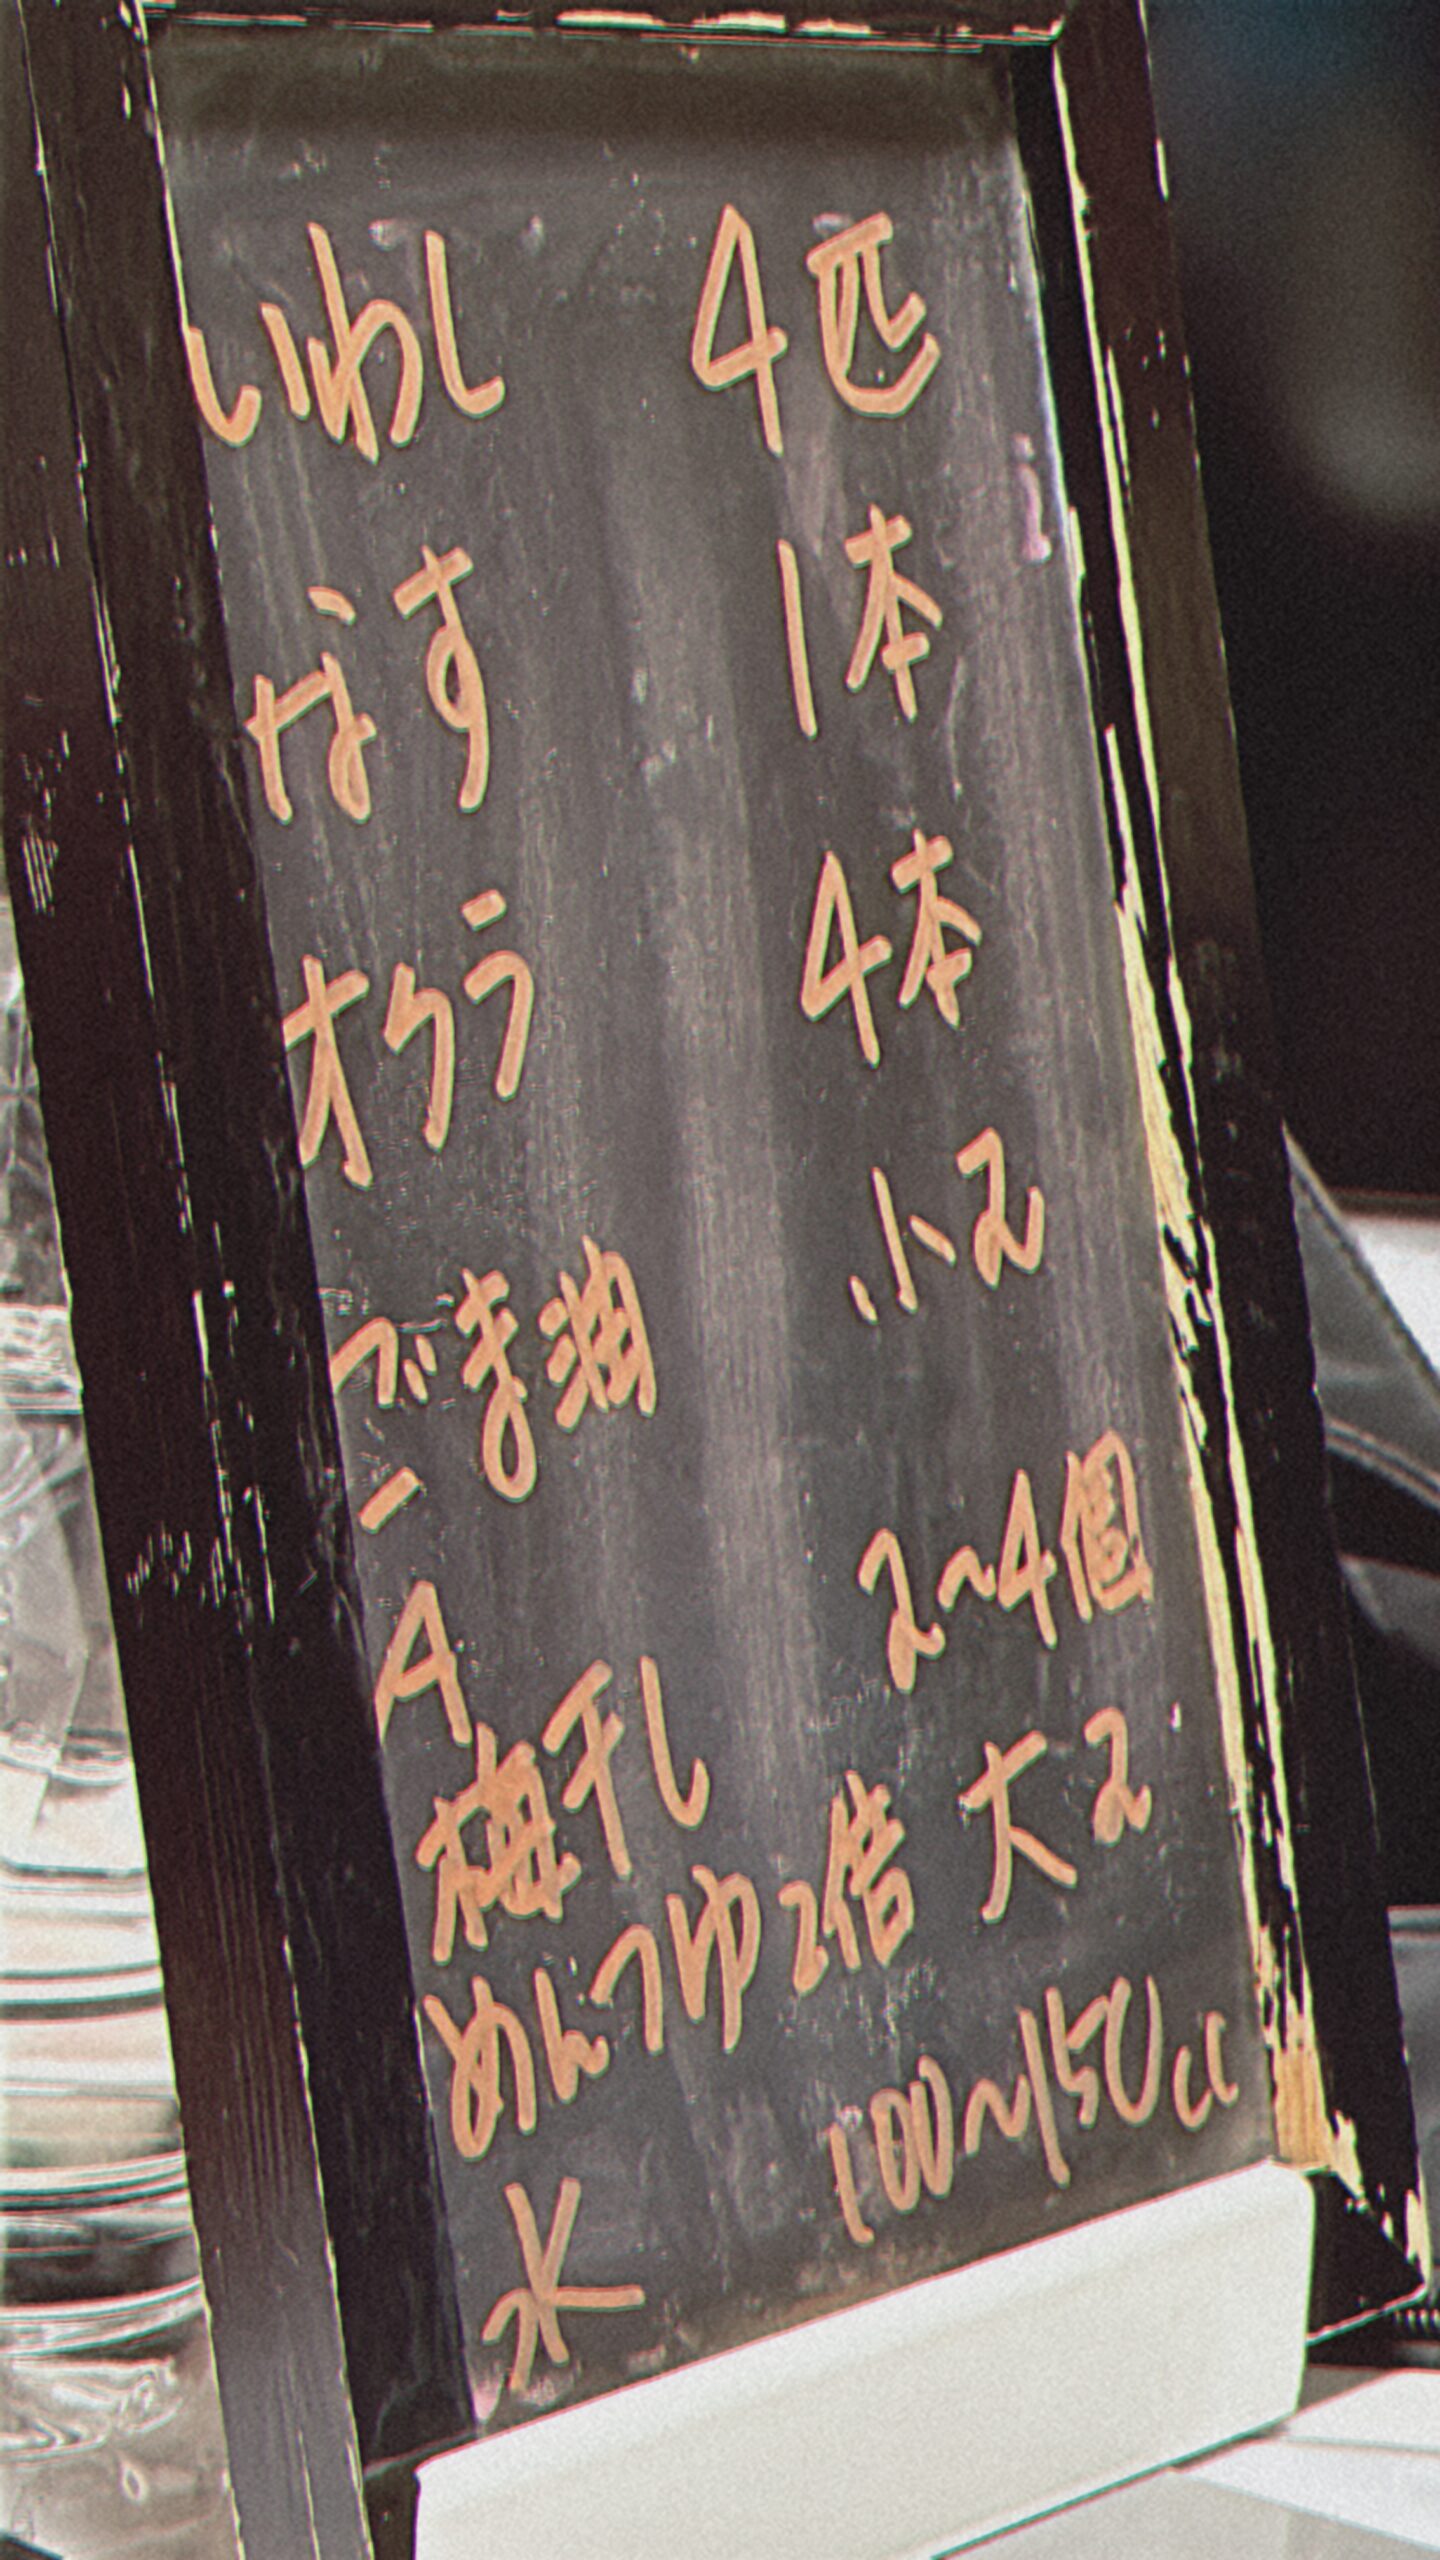 いわし 4匹
なす 1本
オクラ 4本
ごま油 小2
A
梅干し 2~4個
めんつゆ2倍 大2
水 100~150cc